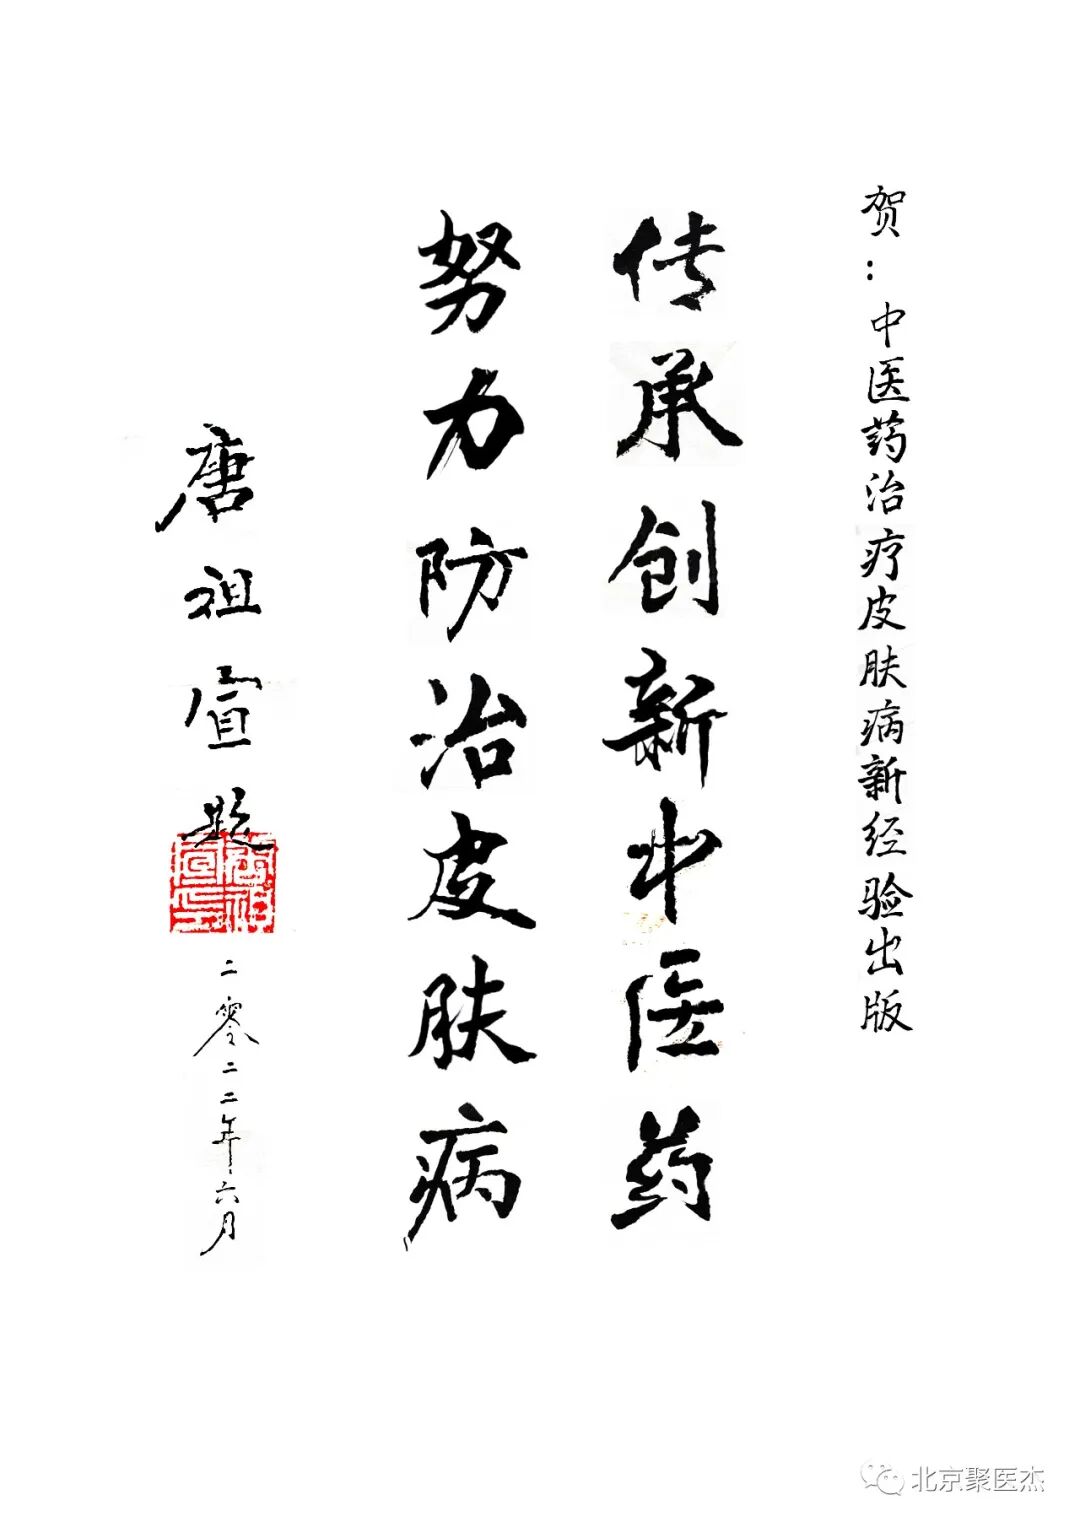 贺：中医药治疗皮肤病新经验出版
传承创新中医药
努力防治皮肤病
唐祖宣题
二零二二年六月
北京聚医杰